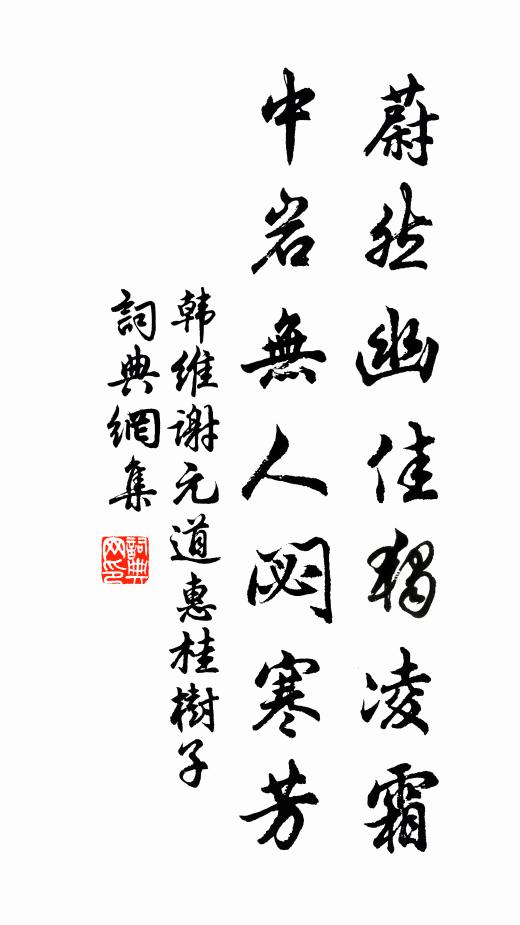 蔚然幽佳独凌霜
中岩無人閟寒芳
韩维谢元道惠桂樹子
詞典網集
詞典网印